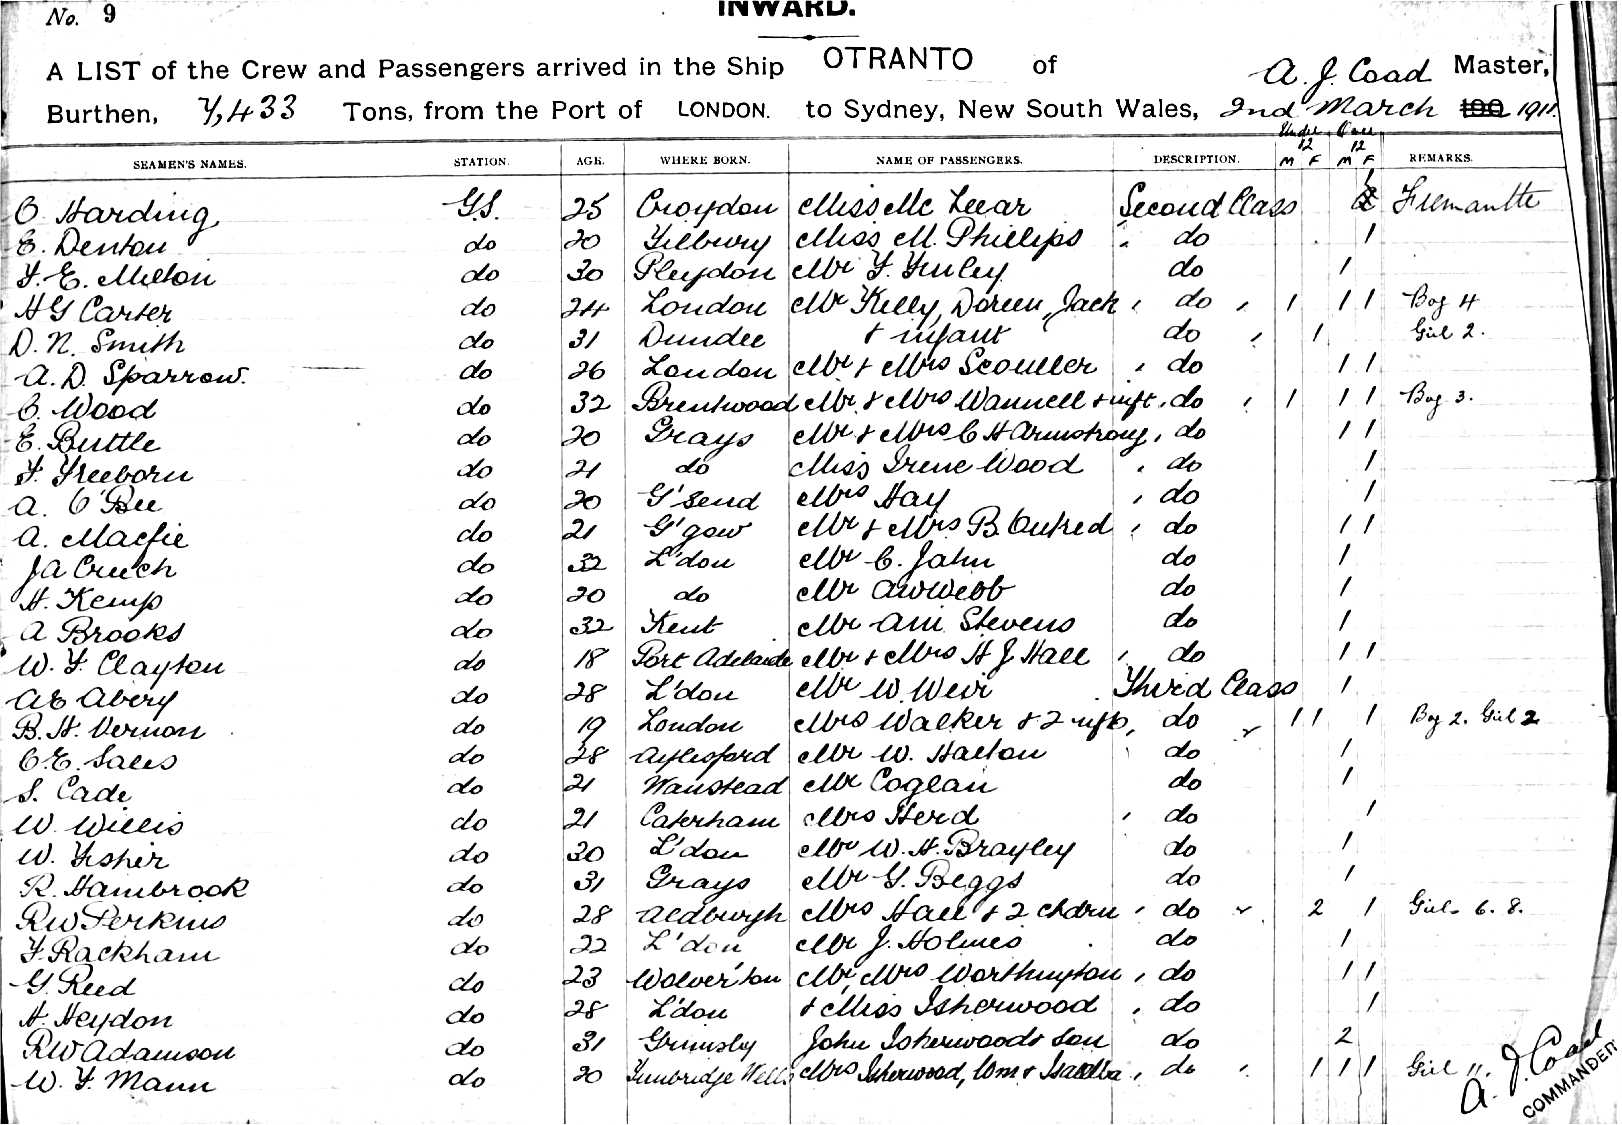 No. 9
INWARD.
A LIST of the Crew and Passengers arrived in the Ship OTRANTO of A. J. Coad Master,
Burthen, 7,433 Tons, from the Port of LONDON. to Sydney, New South Wales, 2nd March 190 1911.
Under 12 Over 12
SEAMEN'S NAMES. STATION. AGE. WHERE BORN. NAME OF PASSENGERS. DESCRIPTION. M F M F REMARKS.
C. Harding G.S. 25 Croydon Miss Mc Lear Second Class 1 Fremantle
E. Denton do 20 Tilbury Miss M. Phillips " do 1
F. E. Milton do 30 Pleydon Mr F. Finley do 1
H G Carter do 24 London Mr Kelly, Doreen, Jack " do " 1 1 1 Boy 4
D. N. Smith do 31 Dundee & infant do " 1 Girl 2.
A. D. Sparrow. do 26 London Mr & Mrs Scouller " do 1 1
C. Wood do 32 Brentwood Mr & Mrs Wannell & inft " do " 1 1 1 Boy 3.
E. Buttle do 20 Grays Mr & Mrs C H Armstrong " do 1 1
F. Freeborn do 21 do Miss Irene Wood " do 1
A. O'Bee do 20 G'send Mrs Hay " do 1
A. Macfie do 21 G'gow Mr & Mrs B. Outred " do 1 1
J A Crech do 32 L'don Mr C. Jahn do 1
H. Kemp do 20 do Mr A W Webb do 1
A Brooks do 32 Kent Mr Stevens do 1
W. F. Clayton do 18 Port Adelaide Mr & Mrs H J Hall " do 1 1
A E Avery do 28 L'don Mr W. Weir Third Class 1
B. H. Vernon do 19 London Mrs Walker & 2 infts, do 1 1 1 Boy 2. Girl 2
C. E. Sales do 28 Aylesford Mr W. Halton do 1
S. Cade do 21 Wanstead Mr Coglan do 1
W. Willis do 21 Caterham Mrs Herd " do 1
W. Fisher do 30 L'don Mr W. H. Brayley do 1
R. Hambrook do 31 Grays Mr G. Beggs do 1
R W Perkins do 28 Aldburgh Mrs Hall & 2 chdrn " do 2 1 Girls 6. 8.
F. Rackham do 22 L'don Mr J. Holmes do 1
G. Reed do 23 Wolver'ton Mr, Mrs Worthington " do 1 1
H. Heydon do 28 L'don & Miss Isherwood " do 1
R W Adamson do 31 Grimsby John Isherwood & son do 2
W. F. Mann do 20 Tunbridge Wells Mrs Isherwood, Wm & Isabella " do " 1 1 1 Girl 11.
A. J. Coad
COMMANDER